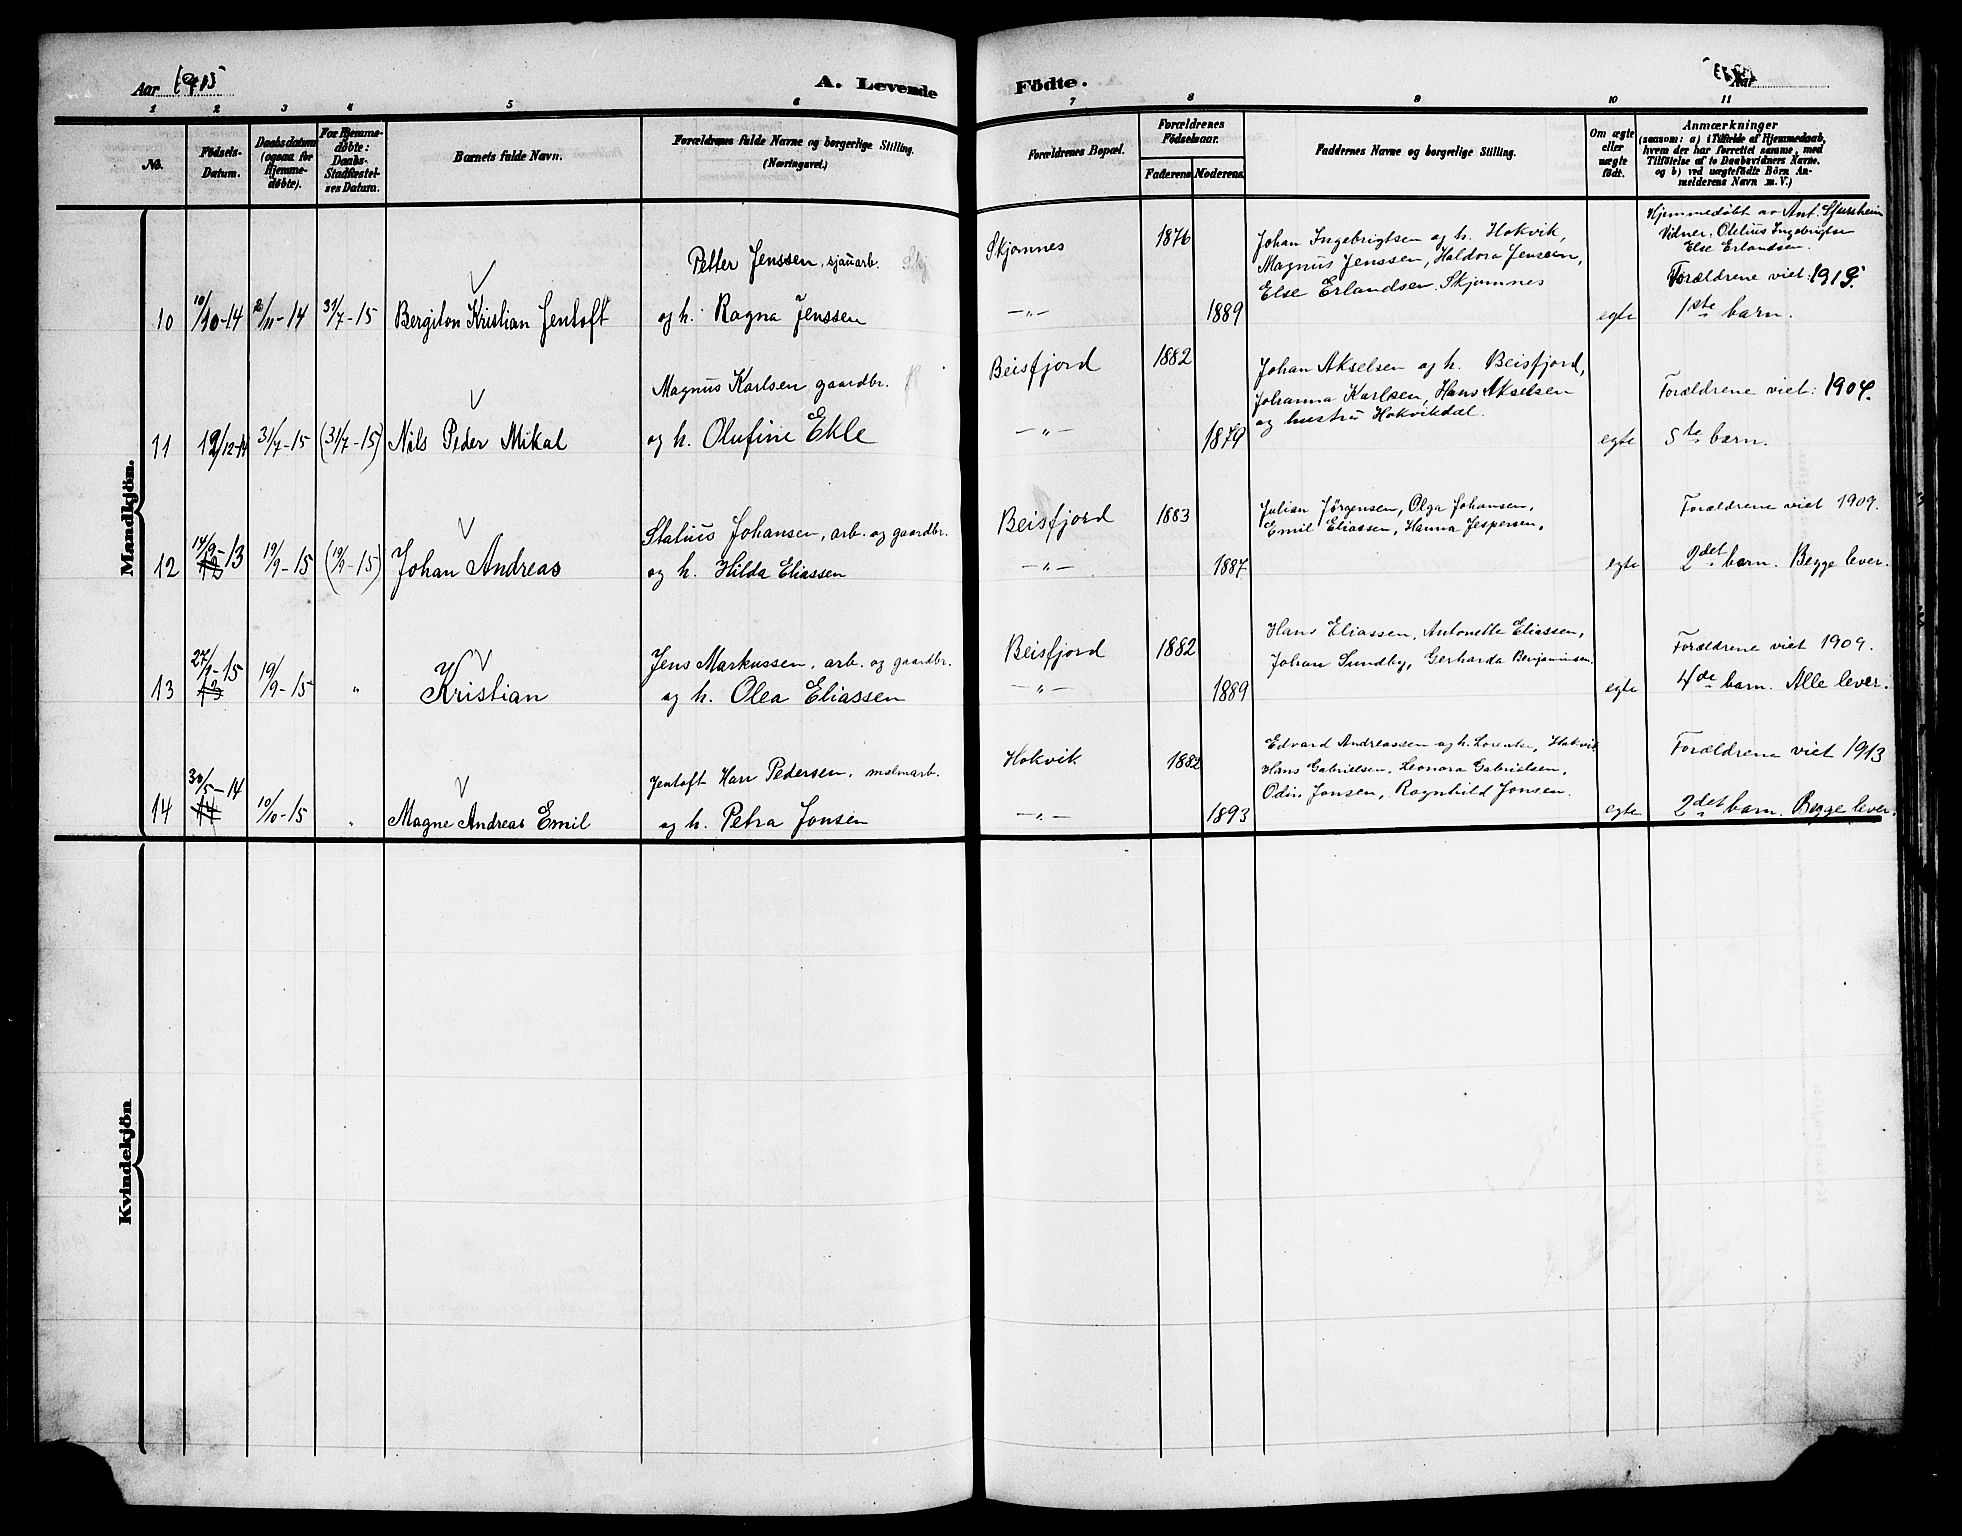 Aar 1915
A. Levende
Födte.
Aar
1 2 3 4 5 6 7 8 9 10 11
No.
Födsels-
Datum.
Daabsdatum
(ogsaa for
Hjemme-
døbte).
For Hjemme-
døbte:
Daabs-
Stadfæstel-
ses Datum.
Barnets fulde Navn.
Forældrenes fulde Navne og borgerlige Stilling.
(Næringsvei.)
Forældrenes Bopæl.
Forældrenes
Födselsaar.
Faderens. Moderens.
Faddernes Navne og borgerlige Stilling.
Om ægte
eller
uægte
født.
Anmærkninger
(saasom: a) i Tilfælde af Hjemmedaab,
hvem der har forrettet samme, med
Tilföielse af to Daabsvidners Navne,
og b) ved uægtefødte Börn An-
melderens Navn m. V.)
Mandkjön.
Hjemmedøbt av Ant. Sjursheim
Vidner, Oletius Ingebrigtsen
Else Erlandsen.
Petter Jenssen, sjauarb.
Skjomnes
1876
Johan Ingebrigtsen og h. Hokvik,
Magnus Jenssen, Haldora Jenssen,
Else Erlandsen, Skjomnes
Forældrene viet: 1915.
10 10/10-14 /11-14 31/7-15 Bergiton Kristian Jentoft
og h. Ragna Jenssen
—"— 1889
egte 1ste barn.
Magnus Karlsen, gaardbr.
Beisfjord
1882
Johan Akselsen og h. Beisfjord,
Johanna Karlsen, Hans Akselsen
og hustru Hokvikdal.
Forældrene viet: 1904.
11 12/12-14 31/7-15 (31/7-15) Nils Peder Mikal
og h. Olufine Ekle
—"— 1879
egte 5te barn.
Statius Johansen, arb. og gaardbr.
Beisfjord
1883
Julian Jørgensen, Olga Johansen,
Emil Eliassen, Hanna Jespersen,
Forældrene viet 1909.
12 14/9-13 19/9-15 (19/9-15) Johan Andreas
og h. Hilda Eliassen
—"— 1887
egte 2det barn. Begge lever.
Jens Markussen, arb. og gaardbr.
Beisfjord
1882
Hans Eliassen, Antonette Eliassen,
Johan Sundby, Gerharda Benjaminsen.
Forældrene viet 1909.
13 27/9-15 19/9-15 " Kristian
og h. Olea Eliassen
—"— 1889
egte 4de barn. Alle lever.
Jentoft Harr Pedersen, malmarb.
Hokvik
1882
Edvard Andreassen og h. Lorentse, Hokvik
Hans Gabrielsen, Leonora Gabrielsen,
Odin Jonsen, Ragnhild Jonsen.
Forældrene viet 1913
14 30/5-14 10/10-15 " Magne Andreas Emil
og h. Petra Jonsen
—"— 1893
egte 2det barn. Begge lever.
Kvindekjön